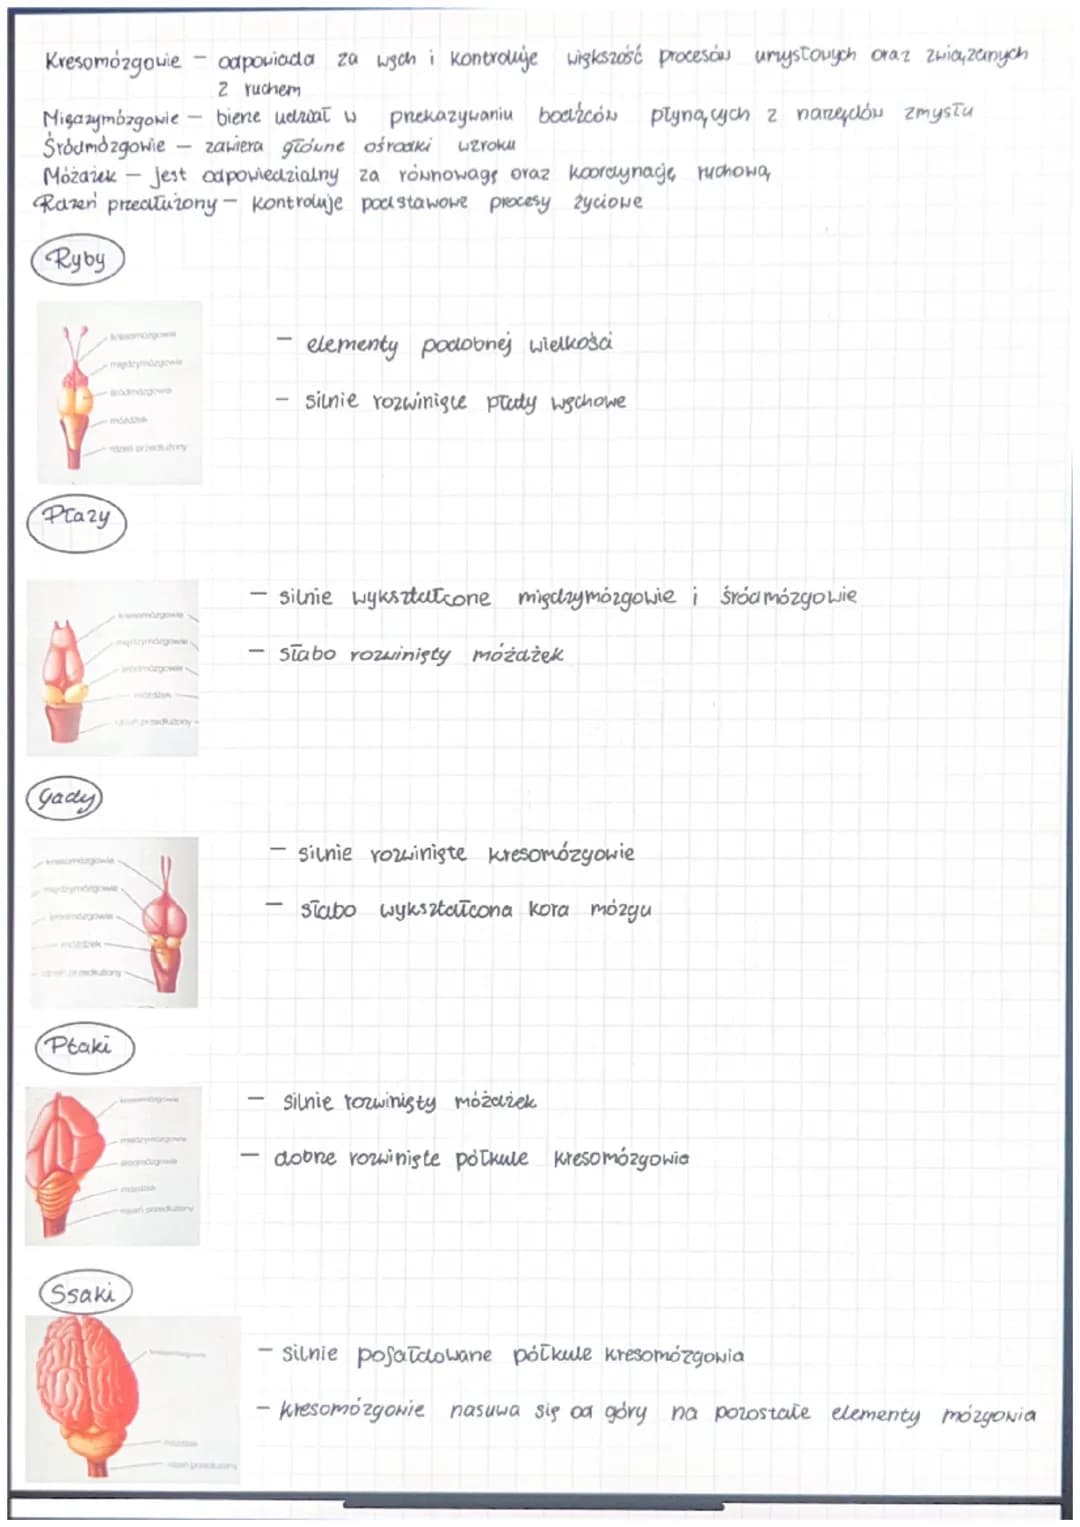 Kresomózgowie - odpowiada za węch i kontroluje większość procesów umysłowych oraz związanych
z ruchem
Międzymózgowie - bierze udział w przekazywaniu bodźców płynących z narządów zmysłu
Śródmózgowie - zawiera główne ośrodki wzroku
Móżdżek - jest odpowiedzialny za równowagę oraz koordynację ruchową
Rdzeń przedłużony - kontroluje podstawowe procesy życiowe
Ryby
kresomózgowie
międzymózgowie
śródmózgowie
móżdżek
rdzeń przedłużony
- elementy podobnej wielkości
- silnie rozwinięte płaty węchowe
Płazy
kresomózgowie
międzymózgowie
śródmózgowie
móżdżek
rdzeń przedłużony
- silnie wykształcone międzymózgowie i śródmózgowie
- słabo rozwinięty móżdżek
Gady
kresomózgowie
międzymózgowie
śródmózgowie
móżdżek
rdzeń przedłużony
- silnie rozwinięte kresomózgowie
- słabo wykształcona kora mózgu
Ptaki
kresomózgowie
międzymózgowie
śródmózgowie
móżdżek
rdzeń przedłużony
- silnie rozwinięty móżdżek
- dobrze rozwinięte półkule kresomózgowia
Ssaki
kresomózgowie
móżdżek
rdzeń przedłużony
- silnie pofałdowane półkule kresomózgowia
- kresomózgowie nasuwa się od góry na pozostałe elementy mózgowia